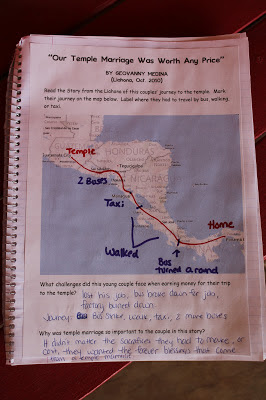 "Our Temple Marriage Was Worth Any Price"
BY GEOVANNY MEDINA
(Liahona, Oct. 2010)
Read the Story from the Liahona of this couples' journey to the temple. Mark
their journey on the map below. Label where they had to travel by bus, walking,
or taxi.
Temple
HONDURAS
Tegucigalpa
NICARAG
2 Buses
Taxi
Walked
Home
Bus
turned around
What challenges did this young couple face when earning money for their trip
to the temple? lost his job, bus broke down for job,
factory burned down
Journey: Bus, walk, taxi, 2 more buses
Why was temple marriage so important to the couple in this story?
It didn't matter the sacrifices they had to make or
cost, they wanted the forever blessings that come
from a temple marriage